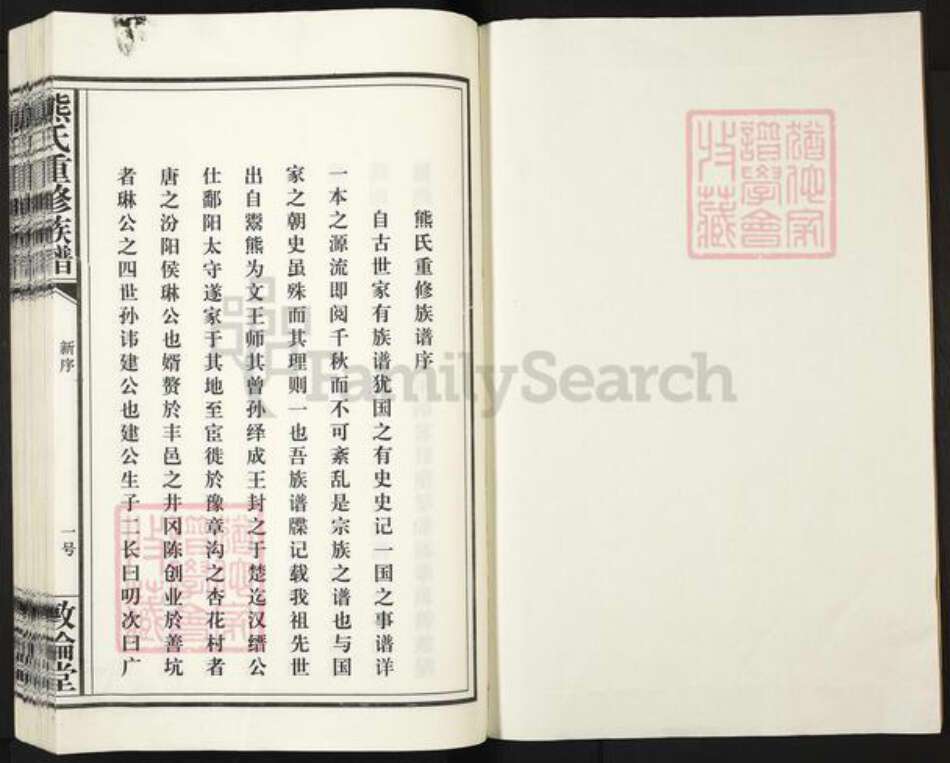 熊氏重修族谱序
自古世家有族谱犹国之有史史记一国之事谱详
一本之源流即阅千秋而不可紊乱是宗族之谱也与国
家之朝史虽殊而其理则一也吾族谱牒记载我祖先世
出自鬻熊为文王师其曾孙绎成王封之于楚迄汉缙公
仕鄱阳太守遂家于其地至宦徙於豫章沟之杏花村者
唐之汾阳侯琳公也婿赘於丰邑之井冈陈创业於善坑
者琳公之四世孙讳建公也建公生子二长曰明次曰广
熊氏重修族谱
新序
一号
敦伦堂
FamilySearch
猶他家
譜學會
收藏
猶他家
譜學會
收藏